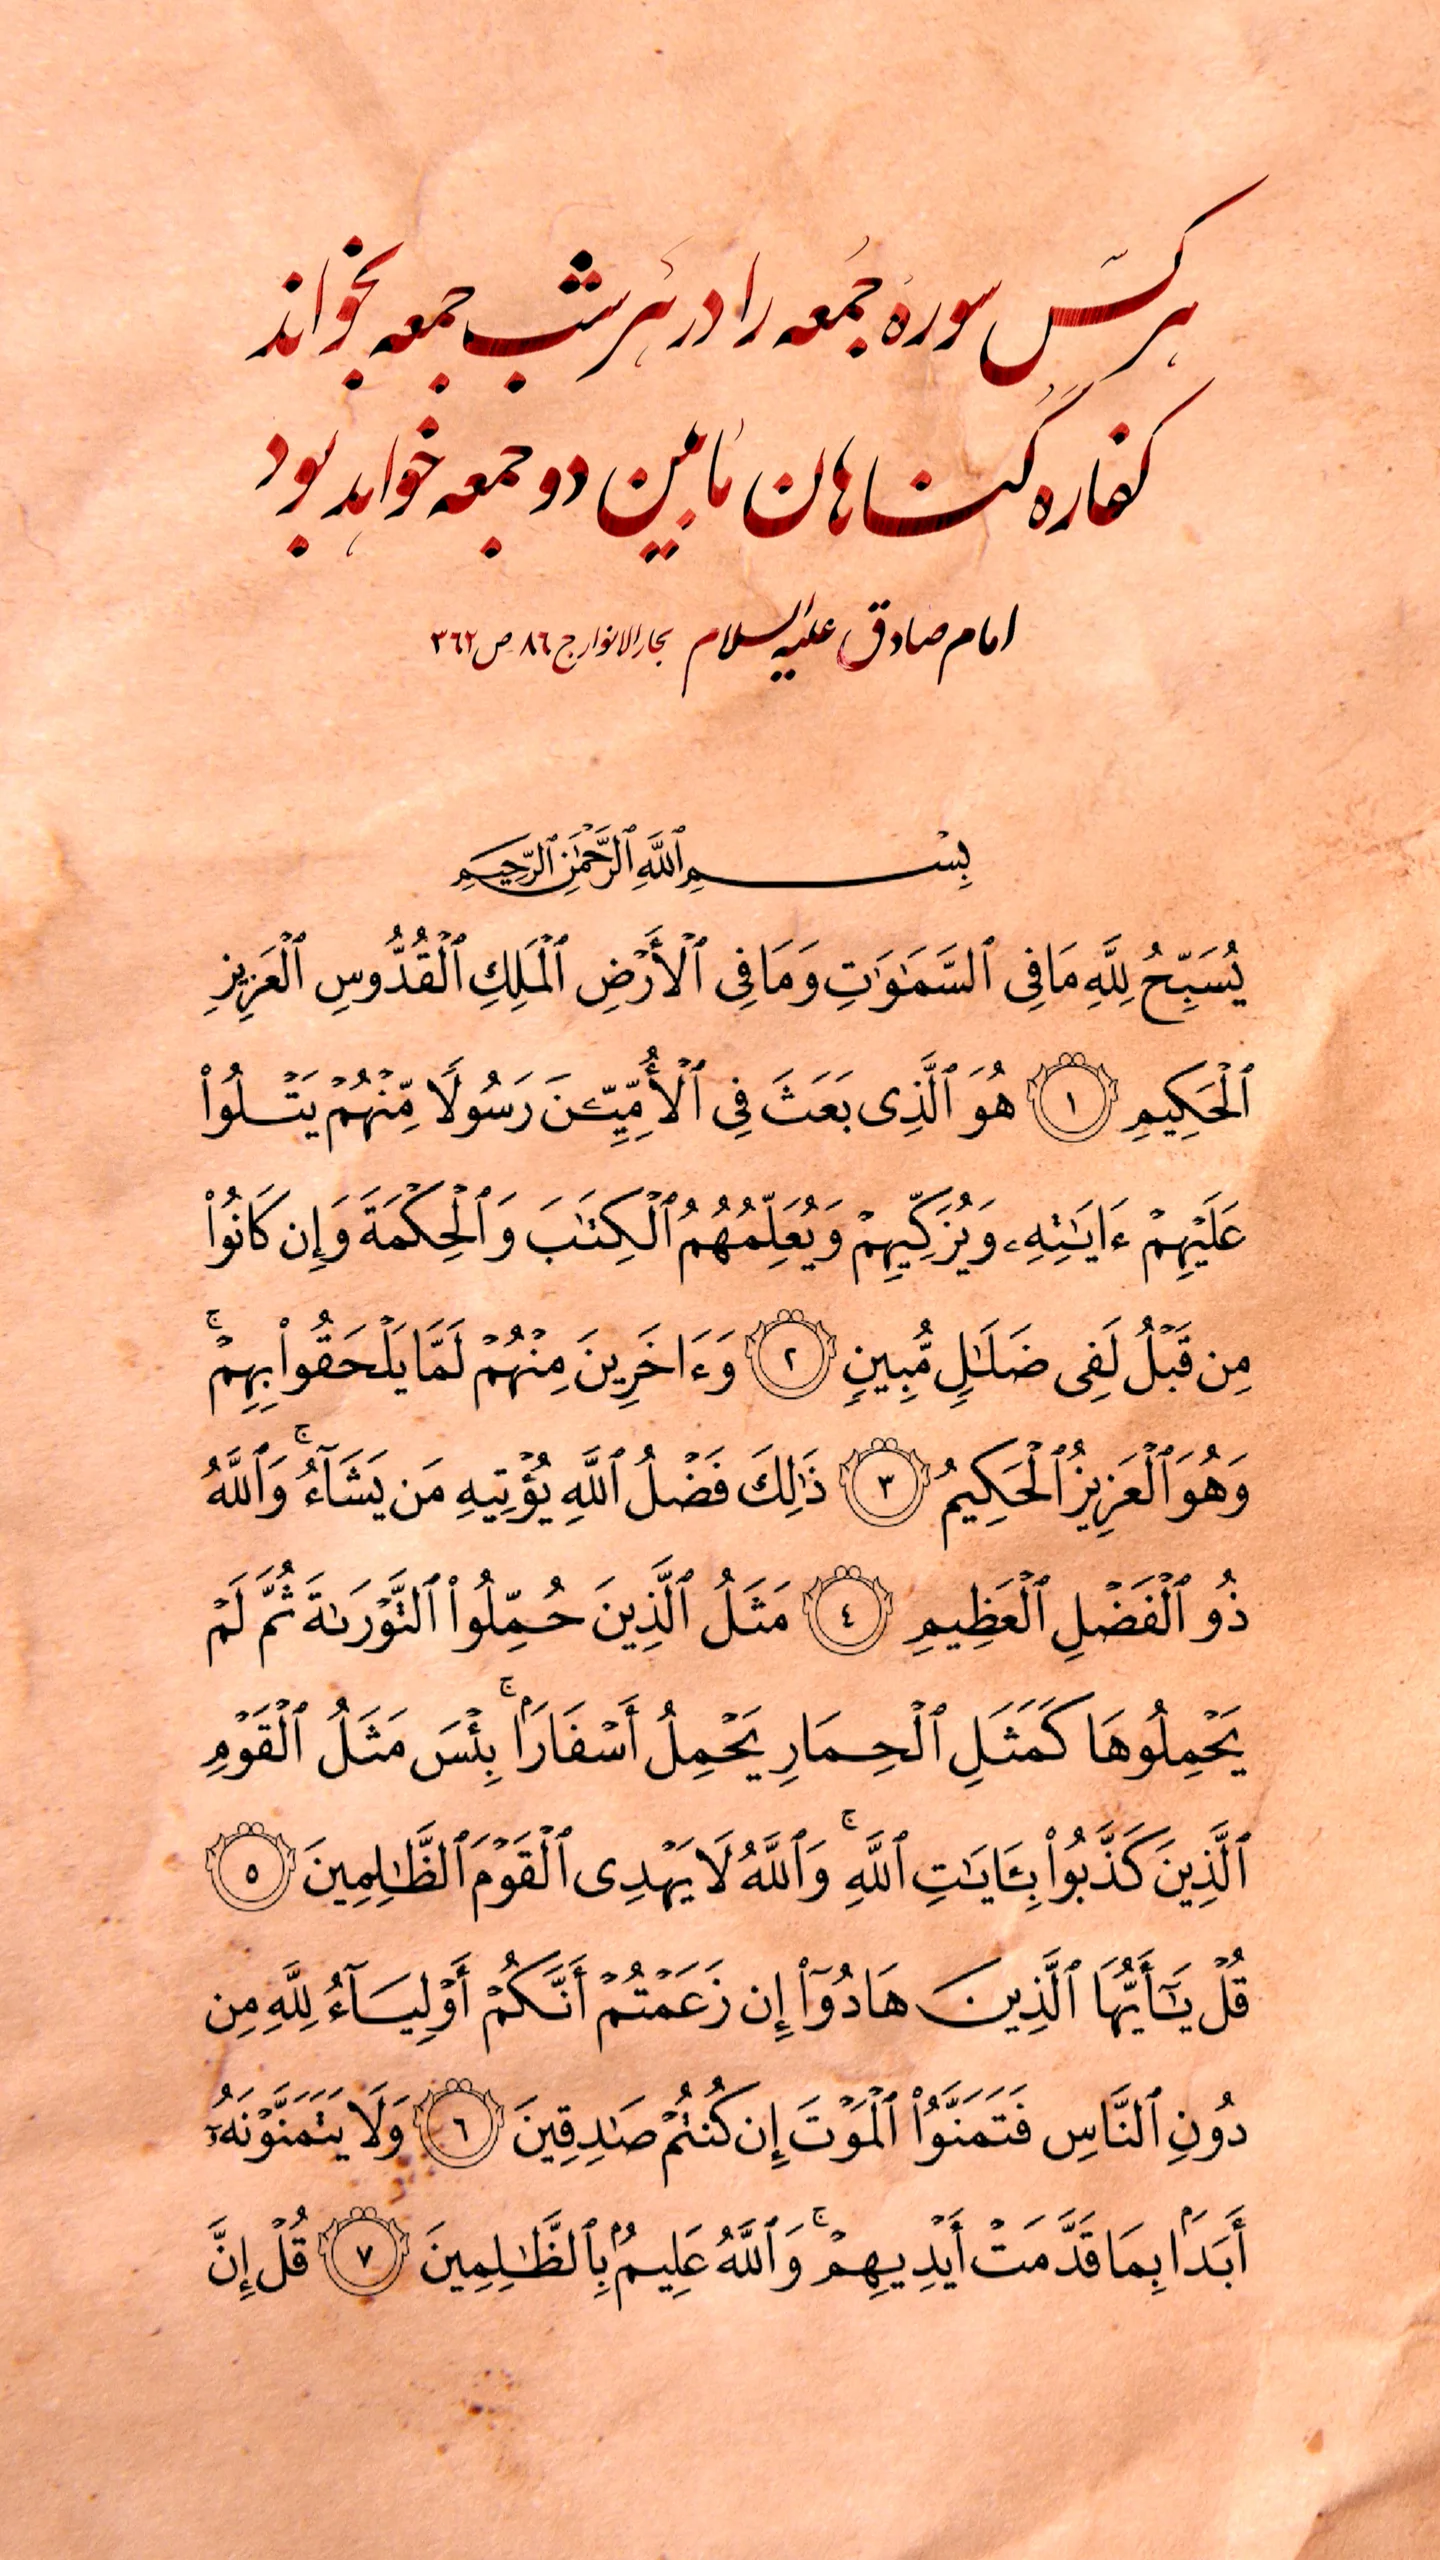 هر کس سوره جمعه را در هر شب جمعه بخواند
کفاره گناهان مابین دو جمعه خواهد بود
امام صادق علیه السلام بحارالانوار ج ۸۶ ص ۳۶۲
بِسْمِ ٱللَّهِ ٱلرَّحْمَٰنِ ٱلرَّحِيمِ
يُسَبِّحُ لِلَّهِ مَا فِى ٱلسَّمَٰوَٰتِ وَمَا فِى ٱلْأَرْضِ ٱلْمَلِكِ ٱلْقُدُّوسِ ٱلْعَزِيزِ
ٱلْحَكِيمِ ١ هُوَ ٱلَّذِى بَعَثَ فِى ٱلْأُمِّيِّـۧنَ رَسُولًا مِّنْهُمْ يَتْلُوا۟
عَلَيْهِمْ ءَايَٰتِهِۦ وَيُزَكِّيهِمْ وَيُعَلِّمُهُمُ ٱلْكِتَٰبَ وَٱلْحِكْمَةَ وَإِن كَانُوا۟
مِن قَبْلُ لَفِى ضَلَٰلٍ مُّبِينٍ ٢ وَءَاخَرِينَ مِنْهُمْ لَمَّا يَلْحَقُوا۟ بِهِمْ ۚ
وَهُوَ ٱلْعَزِيزُ ٱلْحَكِيمُ ٣ ذَٰلِكَ فَضْلُ ٱللَّهِ يُؤْتِيهِ مَن يَشَآءُ ۚ وَٱللَّهُ
ذُو ٱلْفَضْلِ ٱلْعَظِيمِ ٤ مَثَلُ ٱلَّذِينَ حُمِّلُوا۟ ٱلتَّوْرَىٰةَ ثُمَّ لَمْ
يَحْمِلُوهَا كَمَثَلِ ٱلْحِمَارِ يَحْمِلُ أَسْفَارًۢا ۚ بِئْسَ مَثَلُ ٱلْقَوْمِ
ٱلَّذِينَ كَذَّبُوا۟ بِـَٔايَٰتِ ٱللَّهِ ۚ وَٱللَّهُ لَا يَهْدِى ٱلْقَوْمَ ٱلظَّٰلِمِينَ ٥
قُلْ يَٰٓأَيُّهَا ٱلَّذِينَ هَادُوٓا۟ إِن زَعَمْتُمْ أَنَّكُمْ أَوْلِيَآءُ لِلَّهِ مِن
دُونِ ٱلنَّاسِ فَتَمَنَّوُا۟ ٱلْمَوْتَ إِن كُنتُمْ صَٰدِقِينَ ٦ وَلَا يَتَمَنَّوْنَهُۥٓ
أَبَدًۢا بِمَا قَدَّمَتْ أَيْدِيهِمْ ۚ وَٱللَّهُ عَلِيمٌۢ بِٱلظَّٰلِمِينَ ٧ قُلْ إِنَّ